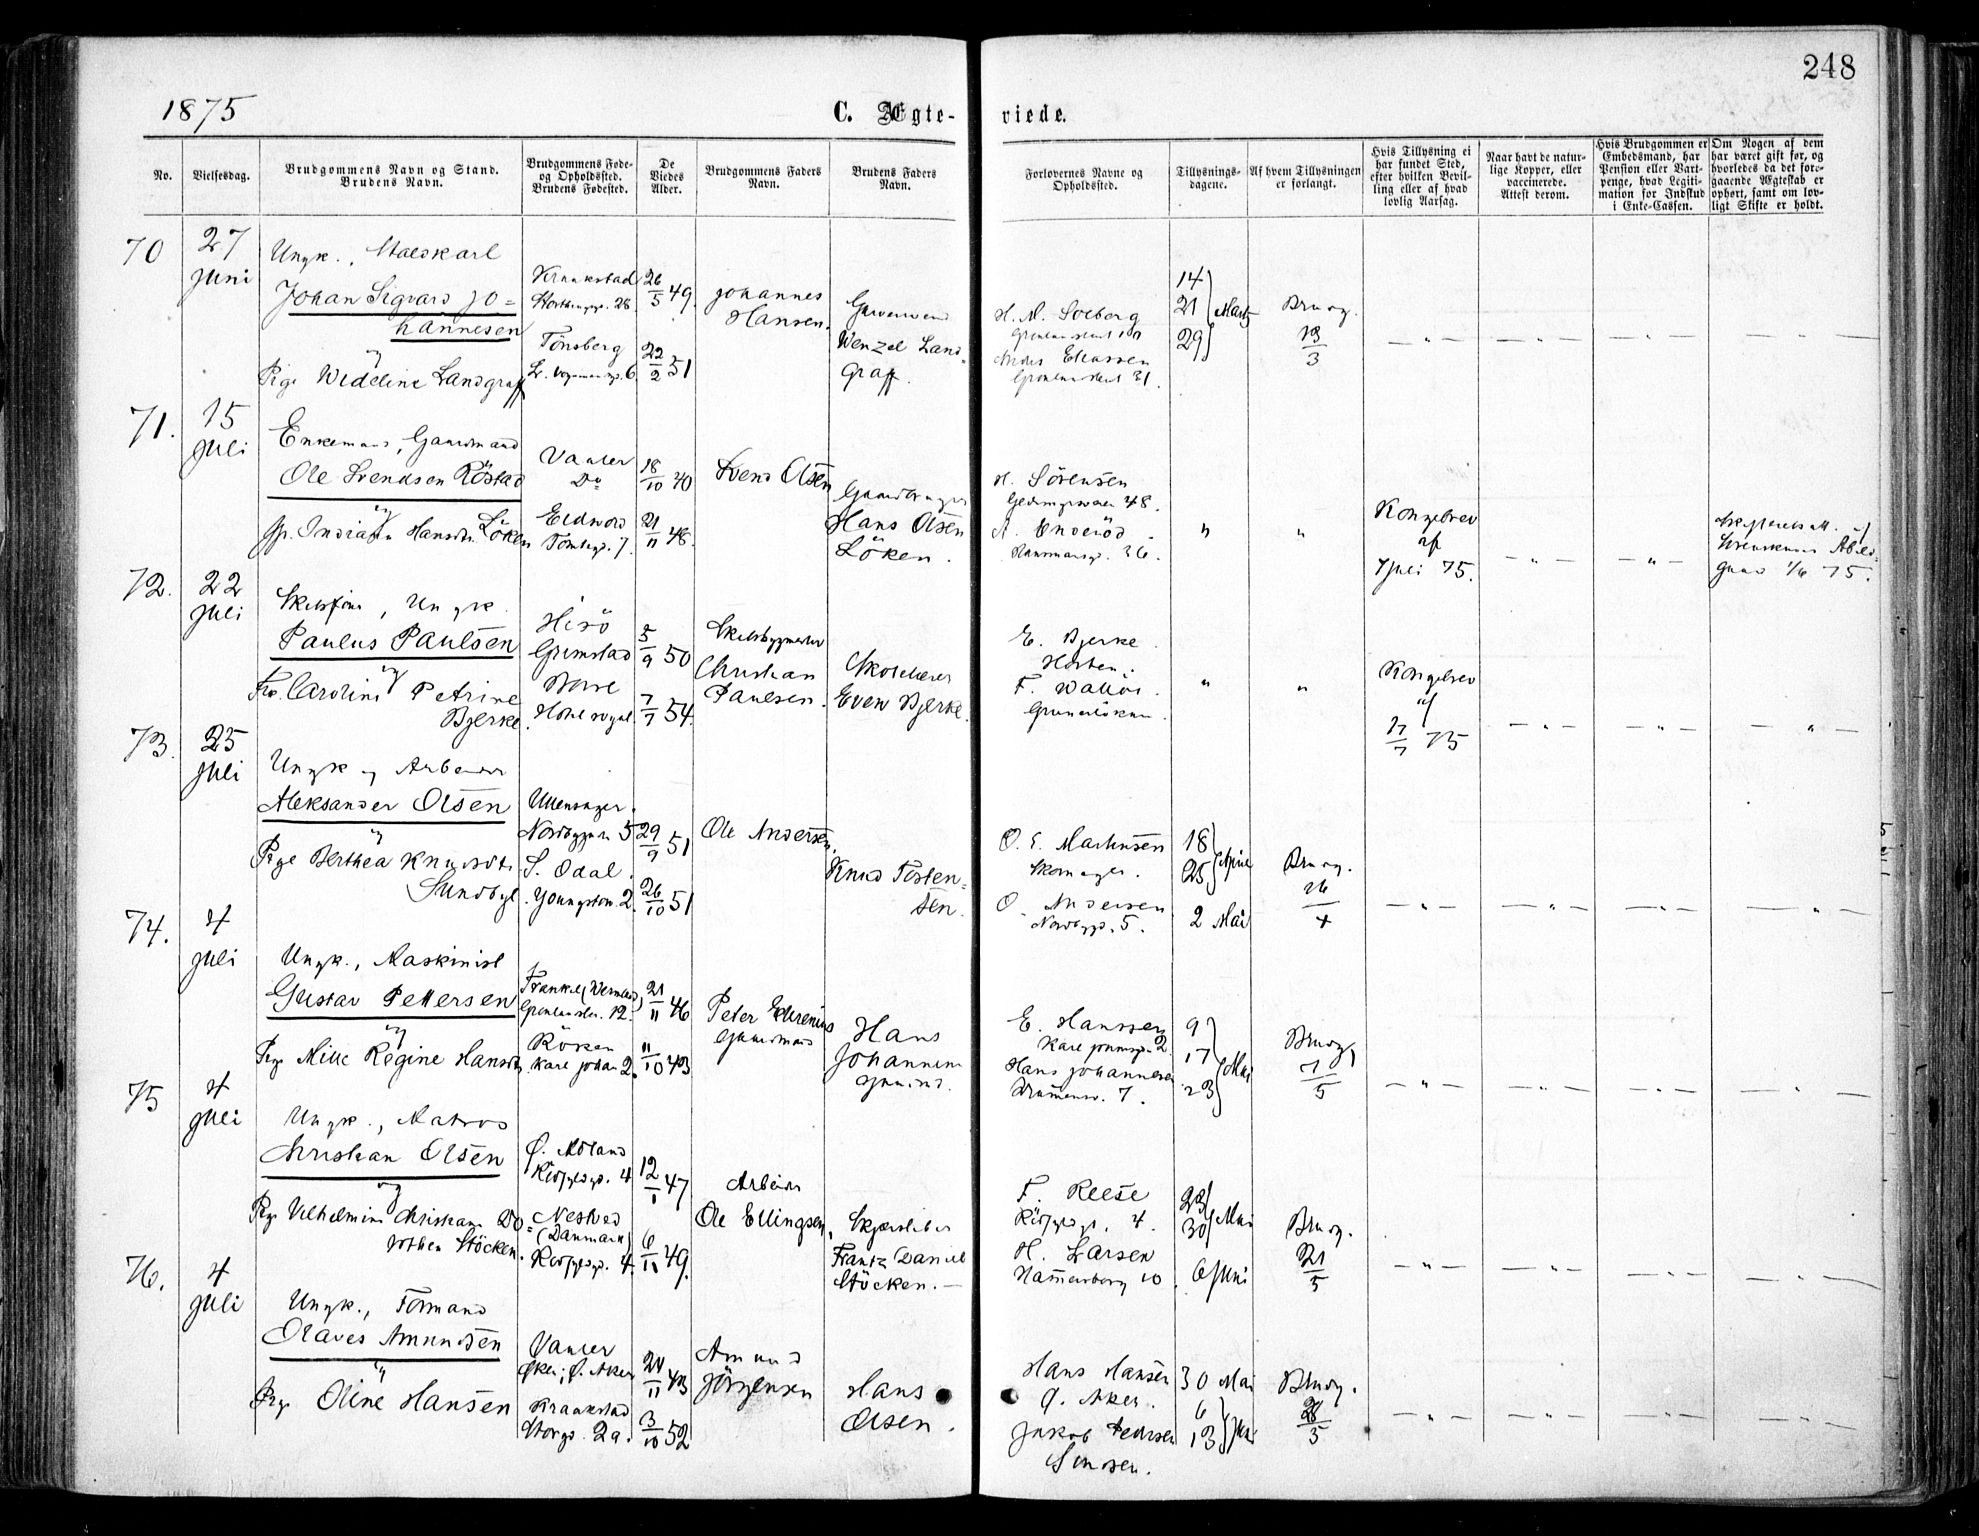 248
1875
C. Ægte- viede.
No.
Vielsesdag.
Brudgommens Navn og Stand.
Brudens Navn.
Brudgommens Føde-
og Opholdssted.
Brudens Fødested.
De
Viedes
Alder.
Brudgommens Faders
Navn.
Brudens Faders
Navn.
Forlovernes Navne og
Opholdssted.
Tillysnings-
dagene.
Af hvem Tillysningen
er forlangt.
Hvis Tillysning ei
har fundet Sted,
efter hvilken Bevil-
ling eller af hvad
lovlig Aarsag.
Naar havt de natur-
lige Kopper, eller
vaccinerede.
Attest derom.
Hvis Brudgommen er
Embedsmand, har
Pension eller Vart-
penge, hvad Legiti-
mation for Indskud
i Enke-Cassen.
Om Nogen af dem
har været gift før, og
hvorledes da det fore-
gaaende Ægteskab er
ophørt, samt om lov-
ligt Skifte er holdt.
70
27
Juni
Ungk.,
Johan Sigvard Jo=
hannesen
og
Pige Wideline Landgraff
Kraakstad
28
Tönsberg
6
26/5 49.
22/2 51
Johannes
Hansen.
Wenzel Land=
graff.
H. A. Solberg
Anders Eliassen
31.
14
21 Marts
29
Brudg.
13/3
71.
15
Juli
Enkemand, Gaardmand
Ole Svendsen Röstad
og
Hansdtr. Löken
Vanser
Do
Eidsvold
Tomtegd. 7.
18/10 40
21/11 48.
Svend Olsen
Gaardbruger
Hans Olsen
Löken.
H. Sörensen
48.
A.
36.
"
"
Kongebrev
af
7 Juli 75.
1/6 75.
72.
22
Juli
Ungk.
Paulus Paulsen
og
Frk. Caroline Petrine
Bjerke.
Hisö
Grimstad
Borre
Hotel royal
5/9 50
7/7 54.
Skibsbygmester
Christian
Paulsen.
Skolelærer
Even Bjerke.
E. Bjerke
Horten.
F.
Grünerlökken
"
"
Kongebrev
af
75
73.
25
Juli
Ungk og Arbeider
Aleksander Olsen
og
Pige Berthea Knudsdtr
Sundbye
Ullensager.
Nordbygd. 5
S. Odal.
Youngstorv. 2.
29/9 51
26/10 51
Ole Andersen.
Knud Tosten=
sen.
O. E. Martinsen
Skomager.
O. Andersen
Nordbygd. 5.
18
25 April
2 Mai
Brudg.
16/4
74.
4
Juli
Ungk., Maskinist
Gustav Pettersen
og
Pige Mille Regine Hansdtr
Grönlandsl. 12.
Röken
Karl Johan 2.
21/11 46
11/10 43
Peter
Gaardmand
Hans
Johannesen
E. Hanssen
Karl Johansgd. 2
Hans Johannesen
7.
9
17 Mai
23
Brudg.
7/5
75
4
Juli
Ungk., Matros
Christian Olsen
og
Pige Vilhelmine Christiane Do=
rothea Stöcken.
Ø. Moland
Rödfyldgd. 4
Nestved
(Danmark)
Rödfyldgd. 4.
12/1 47
6/11 49.
Arbeider
Ole Ellingsen.
Frantz Daniel
Stöcken.
F. Reese
Rödfyldgd. 4.
H. Larsen
Hammersborg 10.
23
30 Mai
6 Juni
Brudg.
21/5
76.
4
Juli
Ungk., Formand
Olaves Amundsen
og
Pige Oline Hansen
Vanser
Ø. Aker
Kraakstad
Storgd. 2a.
24/11 43
3/10 52
Amund
Jörgensen
Hans
Olsen.
Hans Hansen
Ø. Aker.
Jakob Pedersen
30 Mai
6
13 Juni
Brudg.